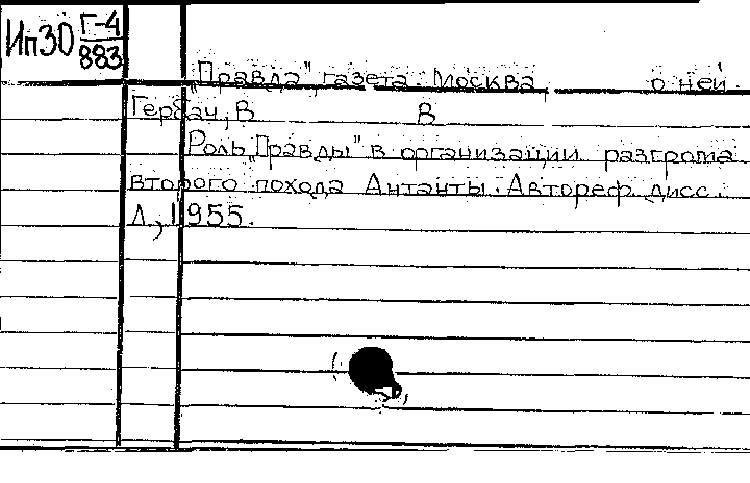 Ип30 Г-4
883
„Правда", газета. Москва, о ней.
Гербач, В В
Роль „Правды" в организации разгрома
второго похода Антанты. Автореф. дисс.
Л., 1955.